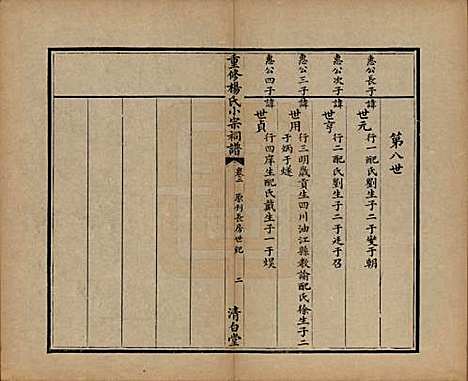 第八世
惠公長子諱
世元
行一配氏劉生子二于燮于朝
惠公次子諱
世亨
行二配氏劉生子二于廷于召
惠公三子諱
世用
行三明歲貢生四川油江縣教諭配氏徐生子二
于炳于燧
惠公四子諱
世貞
行四庠生配氏戴生子一于
重修楊氏小宗祠譜
卷二
原刊長房世紀
二
清白堂